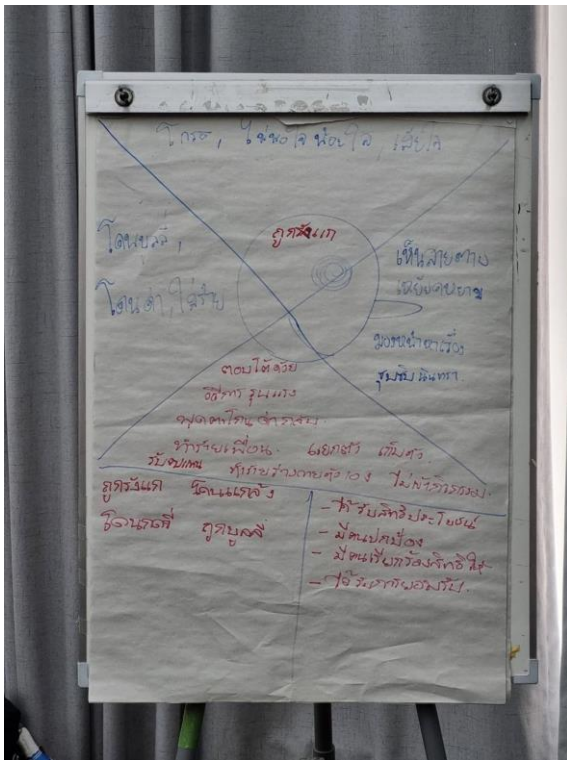 โกรธ, ไม่พอใจ น้อยใจ, เสียใจ
โดนบูลลี่,
โดนด่า, ใส่ร้าย
ถูกรังแก
เห็นสายตาเหยียดหยาม
มองหน้าหาเรื่อง
ซุบซิบ นินทรา
ตอบโต้ด้วย
วิธีการรุนแรง
ทำร้ายเพื่อน. แยกตัว เก็บตัว.
ทำร้ายร่างกายตัวเอง
ถูกรังแก โดนแกล้ง
ถูกบูลลี่
- ได้รับสิทธิประโยชน์
- มีคนปกป้อง
- มีคนเรียกร้องสิทธิให้
- ได้รับการยอมรับ.